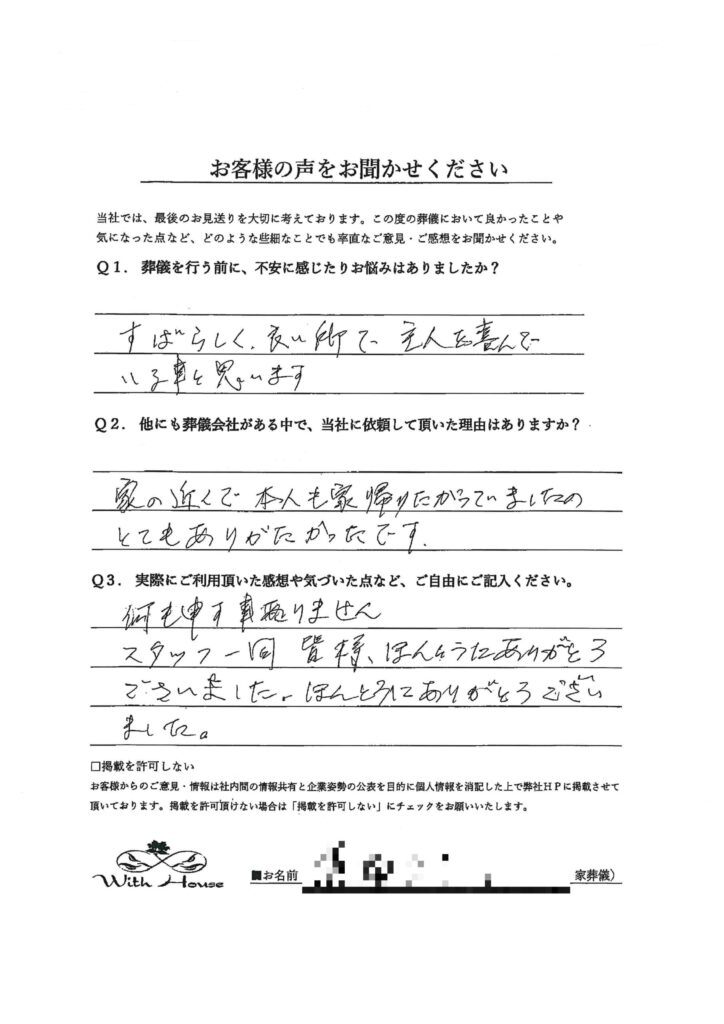 お客様の声をお聞かせください
当社では、最後のお見送りを大切に考えております。この度の葬儀において良かったことや
気になった点など、どのような些細なことでも率直なご意見・ご感想をお聞かせください。
Q1. 葬儀を行う前に、不安に感じたりお悩みはありましたか？
すばらしく、良い御で 主人も喜んで
いる事と思います
Q2. 他にも葬儀会社がある中で、当社に依頼して頂いた理由はありますか？
家の近くで 本人も家帰りたがっていましたの
とてもありがたかったです.
Q3. 実際にご利用頂いた感想や気づいた点など、ご自由にご記入ください。
何も申す事有りません
スタッフ一同 皆様、ほんとうにありがとう
ございました。ほんとうにありがとうござい
ました。
□掲載を許可しない
お客様からのご意見・情報は社内間の情報共有と企業姿勢の公表を目的に個人情報を消記した上で弊社HPに掲載させて
頂いております。掲載を許可頂けない場合は「掲載を許可しない」にチェックをお願いいたします。
With House
■お名前 家葬儀）